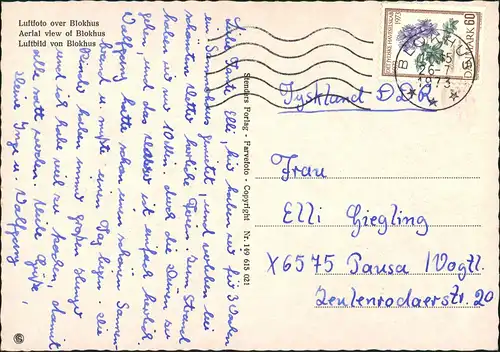 Luftfoto over Blokhus
Aerial view of Blokhus
Luftbild von Blokhus
Liebe Tante Elli, hier haben wir für 3 Wochen
ein Sommerhaus gemietet, und verleben bei
schönstem Wetter herrliche Ferien. Zum Strand
haben wir nur 10 Min. durch die Dünen zu
gehen, und das Wasser ist einfach herrlich.
Wolfgang hatte schon einen schönen Sonnen-
brand u. mußte einen Tag liegen. Die
Kinder haben immer großen Hunger
und ich habe viel zu kochen, damit
alle satt werden. Viele Grüße,
Deine Inge u. Wolfgang
Stenders Forlag - Farvefoto - Copyright Nr. 149 615 021
DET JYDSKE HAVESELSKAB
1973
DANMARK 60
BLOKHUS
26-7
1973
Tyskland DDR
Frau
Elli Giegling
X6575 Pausa /Vogtl.
Zeulenrodaerstr. 20